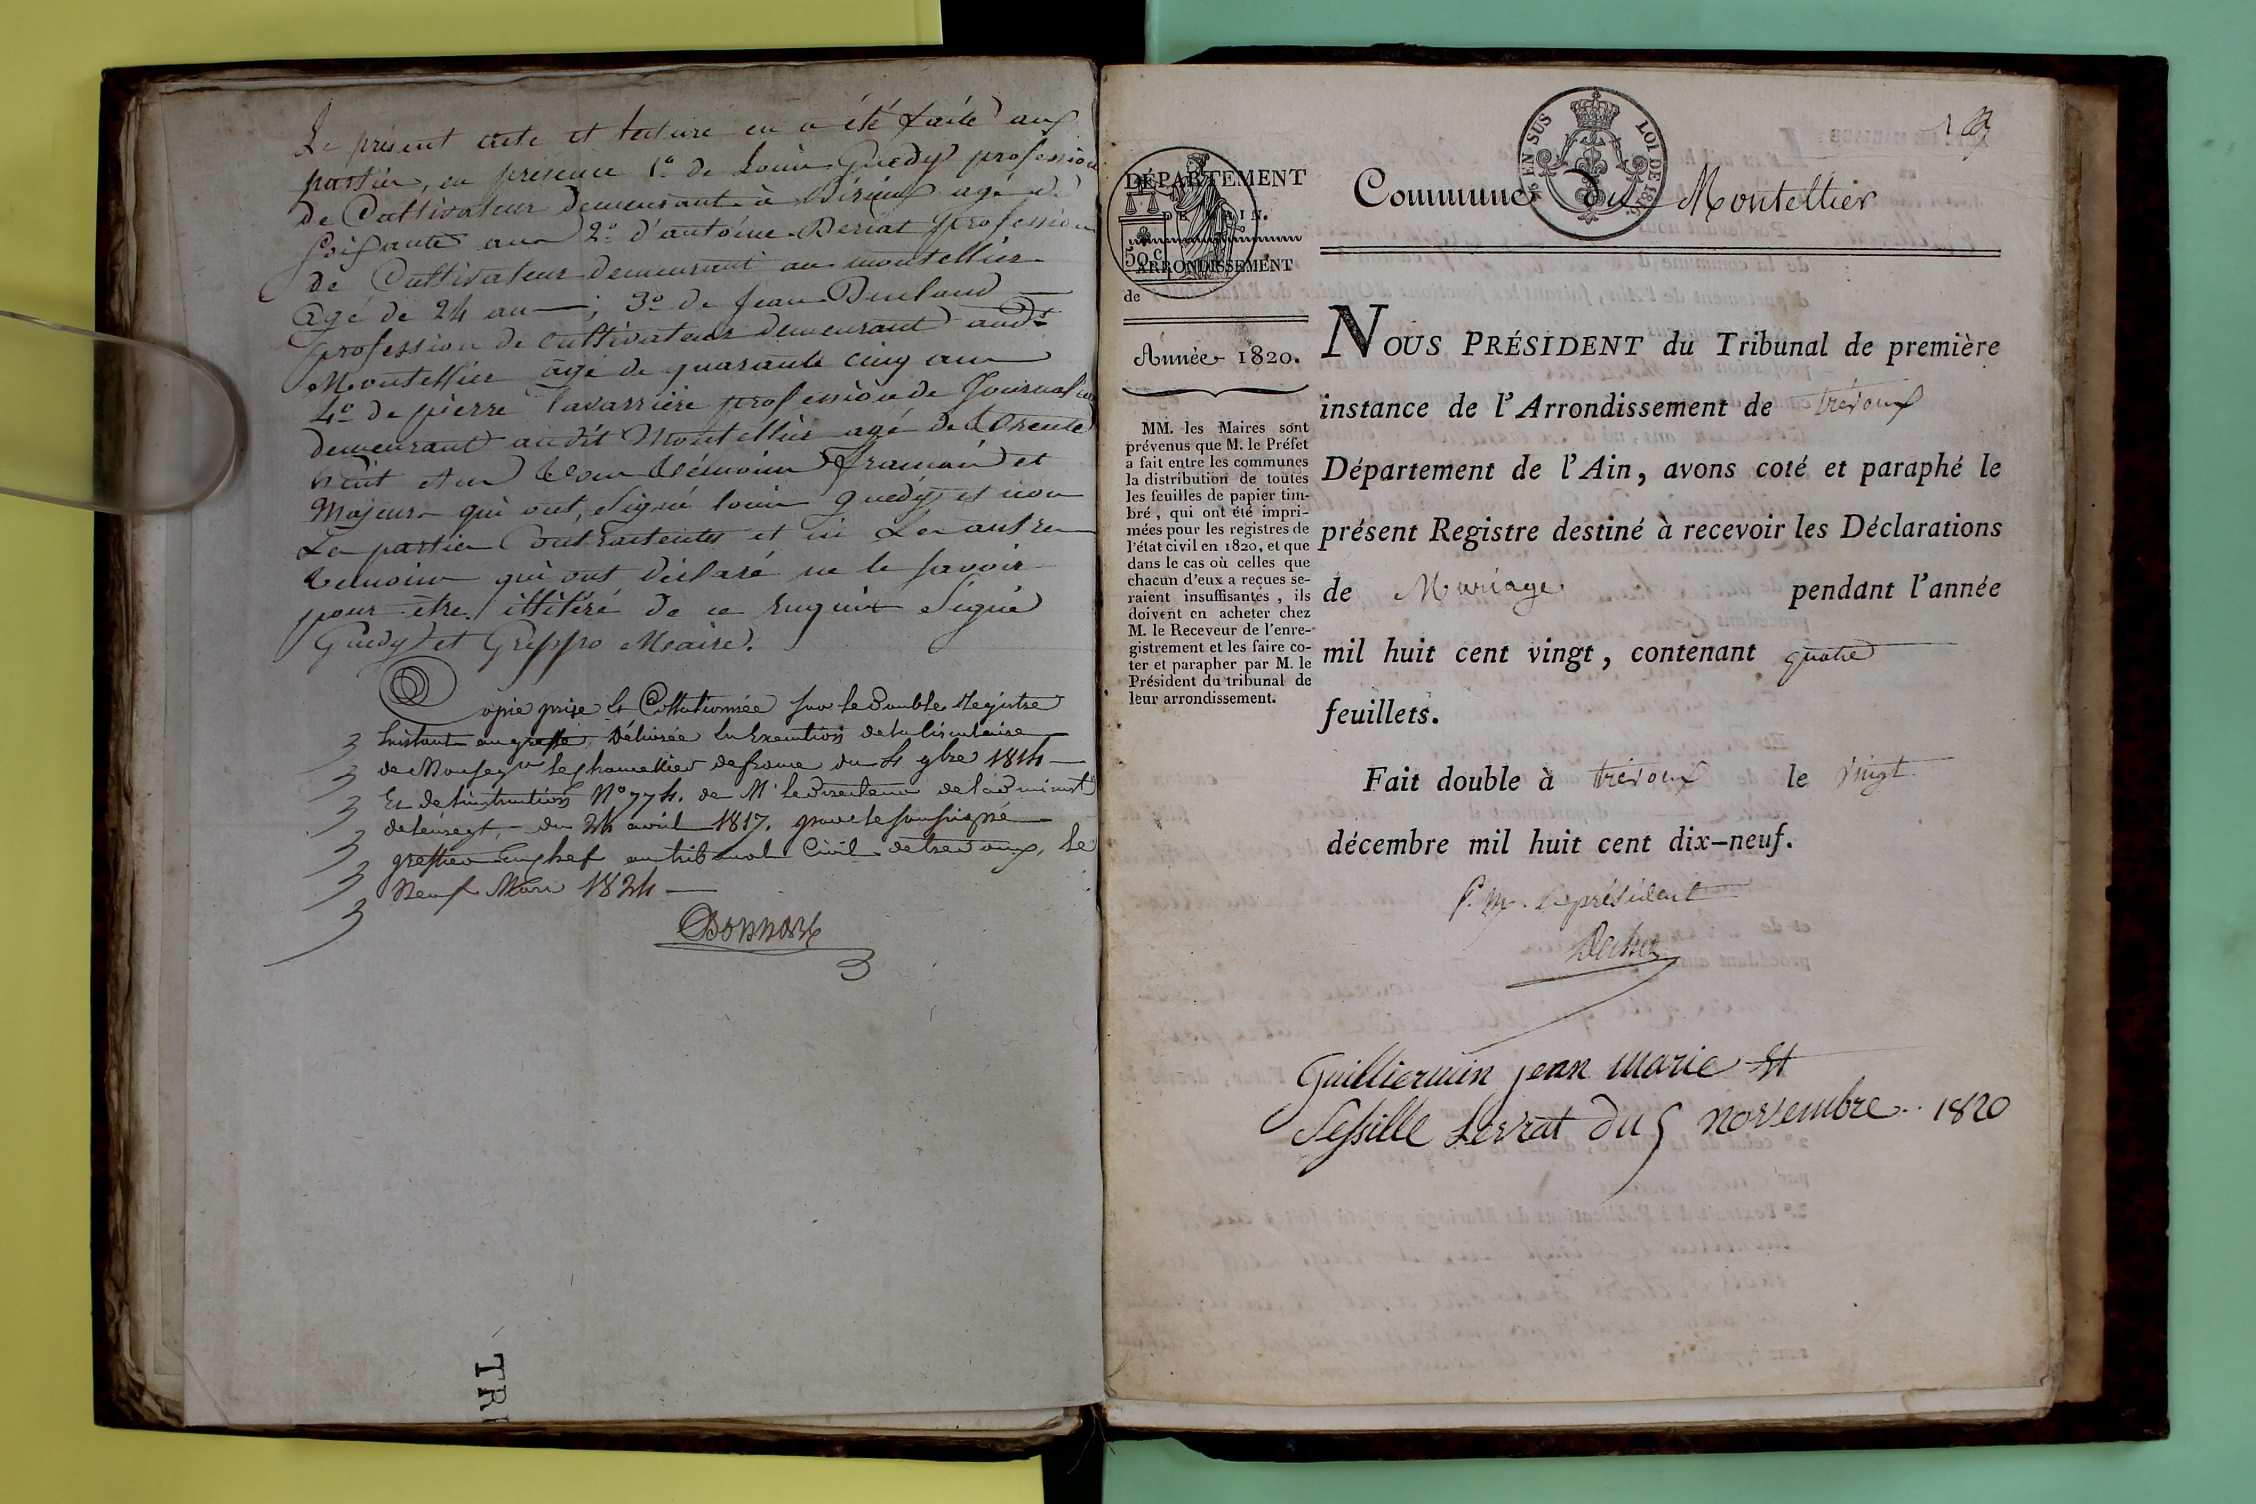 Le présent acte et lecture en a été faite aux
parties, en présence 1.o de Louis Guedy profession
de Cultivateur demeurant à agé de
soixante ans 2.o d'antoine Deriat profession
de Cultivateur demeurant au montellier
agé de 24 ans ; 3.o de Jean
profession de cultivateur demeurant audt
Montellier agé de quarante cinq ans
4.o de pierre Lavarriere profession de Journalier
demeurant audit Montellier agé de trente
huit ans tous témoins français et
majeurs qui ont signé louis guedy et non
Les parties Contractantes et ni Les autres
temoins qui ont déclaré ne le savoir
pour être illitéré de ce requis Signé
Guedy et Greppo Maire.
Copie prise et Collationnée sur le double Registre
Existant au greffe, Délivrée En Execution de la Circulaire
de Monseigr le chancellier de france du 4 9bre 1814
Et de l'instruction No 774. de Mr le Directeur de l'administ
de l'enregt, du 24 avril 1817. par le soussigné
greffier En chef au tribunal Civil de trevoux, le
Neuf Mars 1824
TRI
DÉPARTEMENT
DE L'AIN.
50 c.
ARRONDISSEMENT
de
Année 1820.
MM. les Maires sont
prévenus que M. le Préfet
a fait entre les communes
la distribution de toutes
les feuilles de papier tim-
bré, qui ont été impri-
mées pour les registres de
l'état civil en 1820, et que
dans le cas où celles que
chacun d'eux a reçues se-
raient insuffisantes, ils
doivent en acheter chez
M. le Receveur de l'enre-
gistrement et les faire co-
ter et parapher par M. le
Président du tribunal de
leur arrondissement.
EN SUS
LOI DE 1816.
Commune du Montellier
NOUS PRÉSIDENT du Tribunal de première
instance de l'Arrondissement de trévoux
Département de l'Ain, avons coté et paraphé le
présent Registre destiné à recevoir les Déclarations
de Mariage pendant l'année
mil huit cent vingt, contenant quatre
feuillets.
Fait double à trévoux le vingt
décembre mil huit cent dix-neuf.
Le président
Guilliermin jean marie Et
Sessille Levrat du 5 novembre 1820